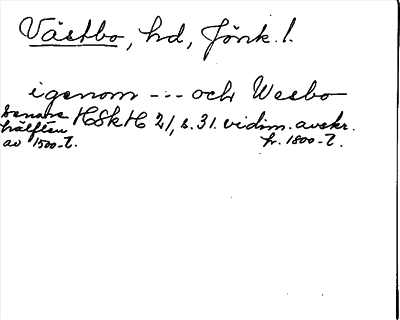 Västbo, hd, Jönk. l.
igenom --- och Wesbo
senare hälften av 1500-t. HSkH 21, s. 31. vidim. avskr. fr. 1800-t.